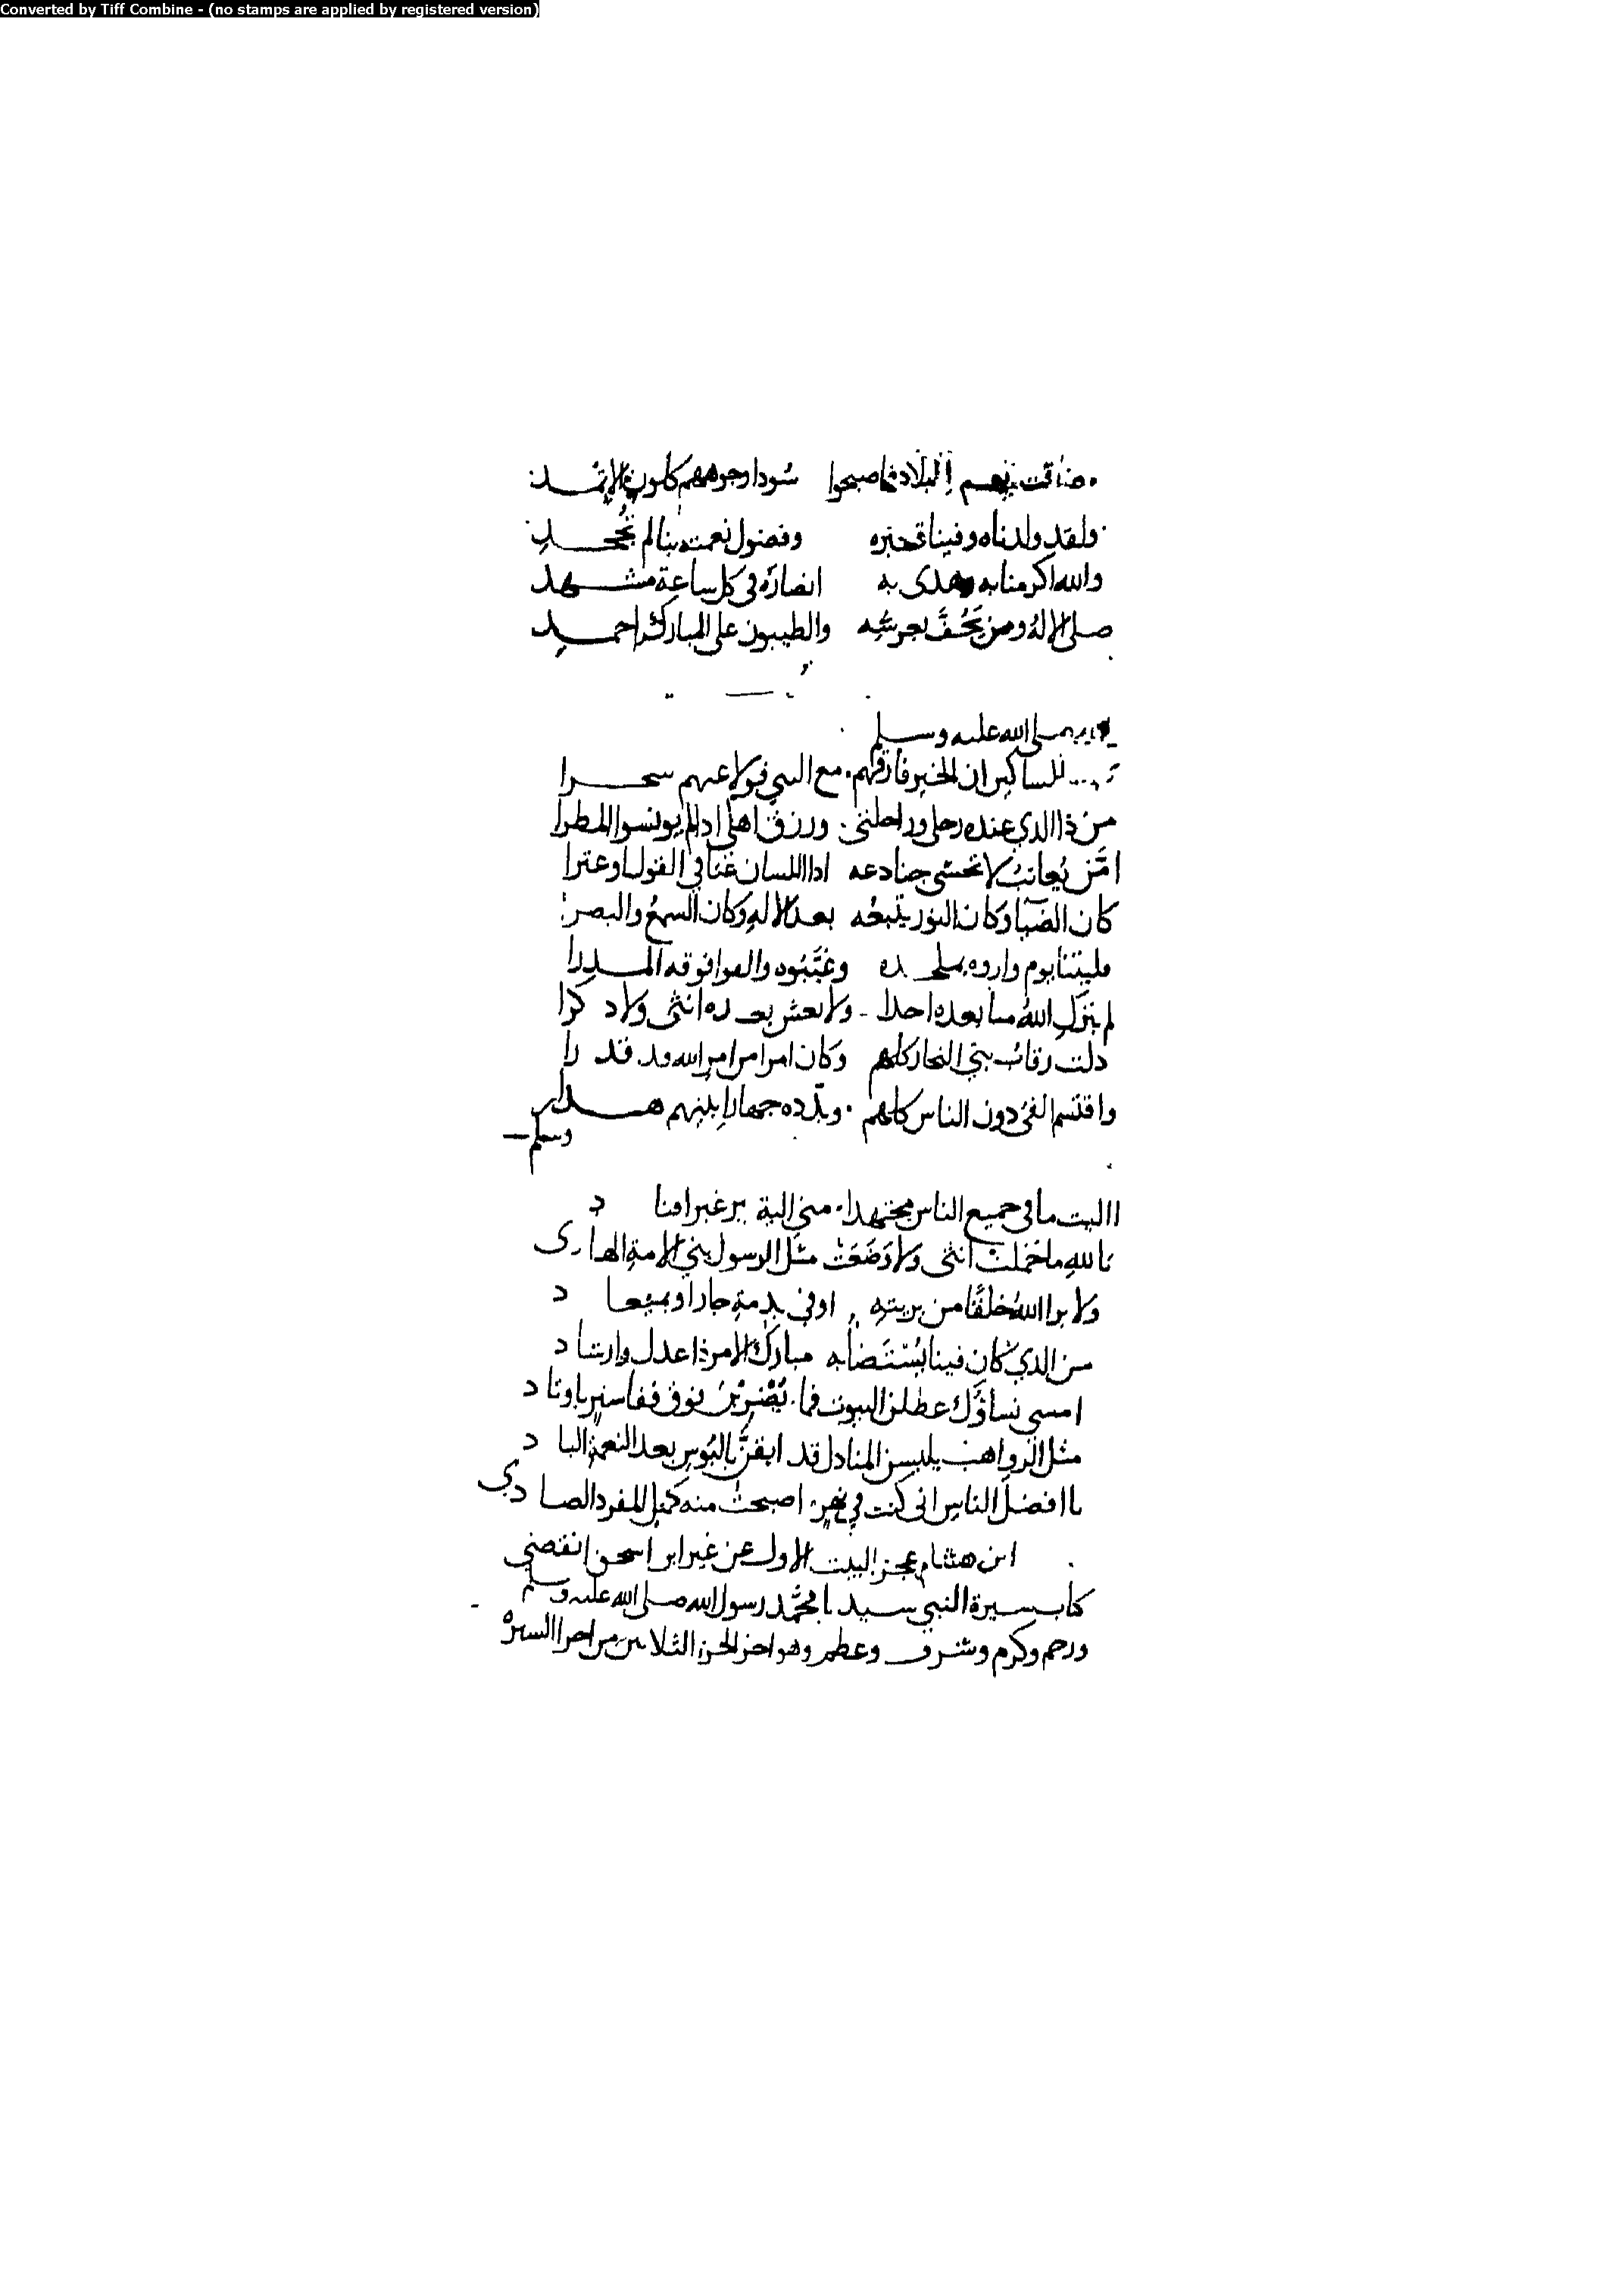 Converted by Tiff Combine - (no stamps are applied by registered version)
ضاقت بهم البلاد فاصبحوا سُودا وجوههم كلون الاثمد
ولقد ولدناه وفينا قبره وفضول نعمته بنا لم يُجحدِ
والله اكرمنا به وهدى به انصارَه فى كل ساعةِ مشهد
صلى الاله ومن يَحُفَّ بعرشه والطيبون على المبارك احمدِ
صلى الله عليه وسلم
للمساكين ان الخير فارقهم مع النبى تولا عنهم سحرا
من ذا الذي عنده رحلى وراحلتى ورزق اهلى اذا لم يونسوا المطرا
امَّن يُعاتبُ لا تخشى جنادعه اذا اللسان عتا فى القول او عثرا
كان الضيا وكان النور يتبعُه بعد الالهِ وكان السمعُ والبصرا
فليتنا يوم واروه بملحده وغيَّبوه والقوا فوقه المدرا
لم ينزكِ اللهُ منا بعده احدا ولا يعش بعده انثى ولا ذكرا
ذلت رقابُ بني النجار كلهم وكان امرا من امر الله قد قدرا
واقتسم الفئ دون الناس كلهم وبدّده جهارا بينهم هدرا
وسلم
االيت ما فى جميع الناس مجتهدا مني الية بر غير افناد
تاللهِ ما حملت انثى ولا وَضَعَتْ مثلَ الرسول بني الامةِ الهادى
ولا برا اللهُ خلقًا من بريته اوفى بذمةِ جار او بميعاد
من الذي كان فينا يُسْتَضَا به مبارك الامر ذا عدل وارشاد
امسى نساؤك عطلن البيوت فما يَضْرِبْنَ فوق قفا ستر باوتاد
مثل الرواهب يلبسن المباذل قد ايقنَّ بالبُوسِ بعد النعمة الباد
يا افضلَ الناس انى كنت فى نهر اصبحتُ منه كمثل المفرد الصادي
ابن هشام عجز البيت الاول عن غير ابن اسحق انقضى
كتاب سيرة النبي سيدنا محمَّد رسول الله صلى الله عليه وسلم
ورحم وكرم وشرف وعظم وهو اخر الجزء الثلاثين من اجزا السيرة